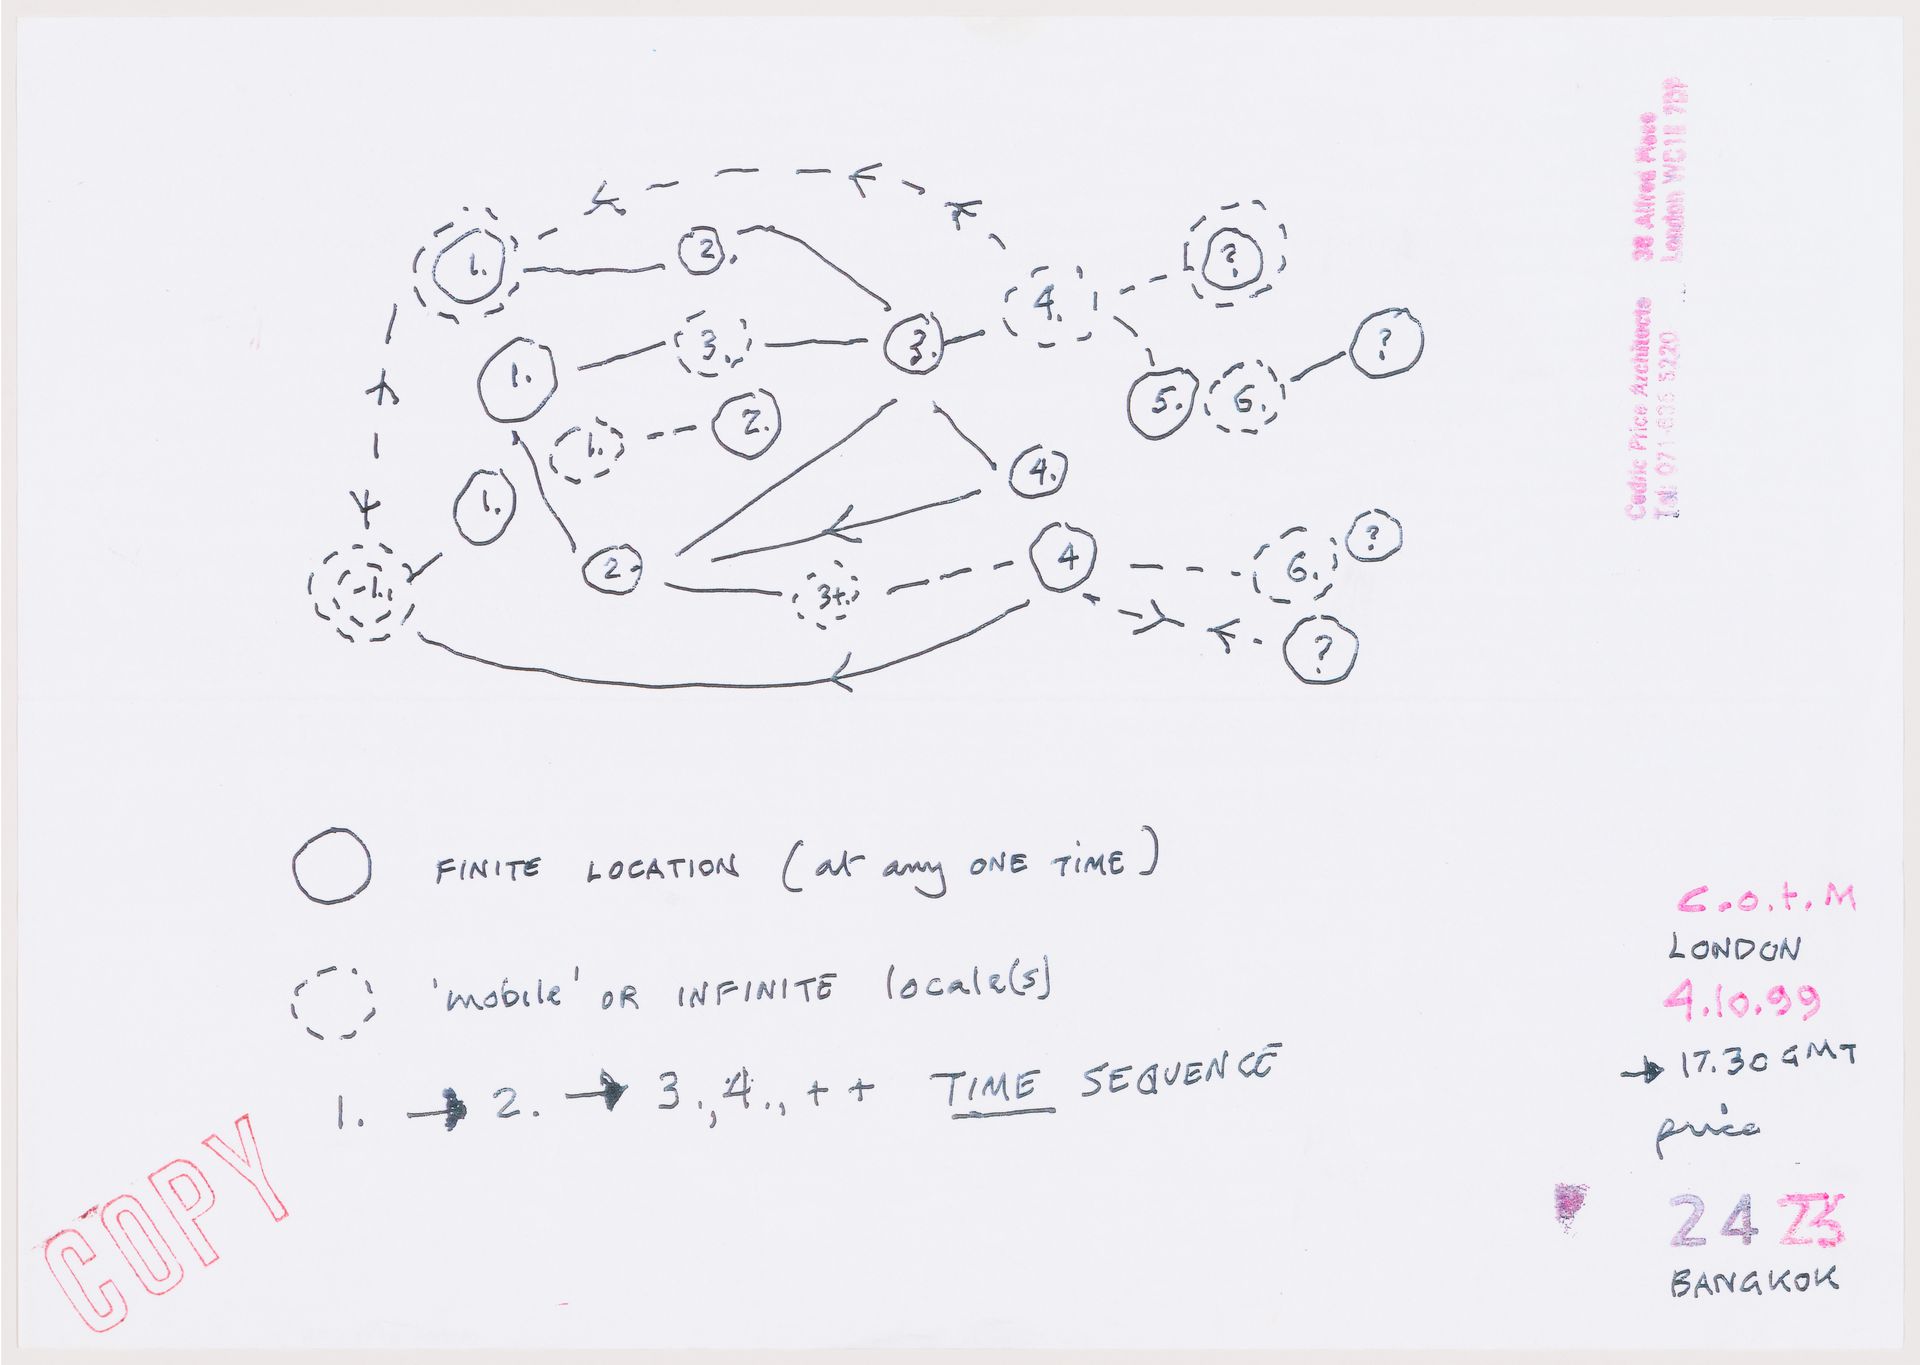 1.
2.
?
4.
1.
3.
3.
?
1.
2.
5.
6.
1.
1.
4.
2.
4
6.
?
-1.
3+.
?
FINITE LOCATION (at any ONE TIME)
'mobile' OR INFINITE locale(s)
1. → 2. → 3., 4., + + TIME SEQUENCE
COPY
Cedric Price Architects 38 Alfred Place
London WC1E 7DP
Tel: 071-636 5220
C.o.t.M
LONDON
4.10.99
→ 17.30 GMT
price
24
BANGKOK